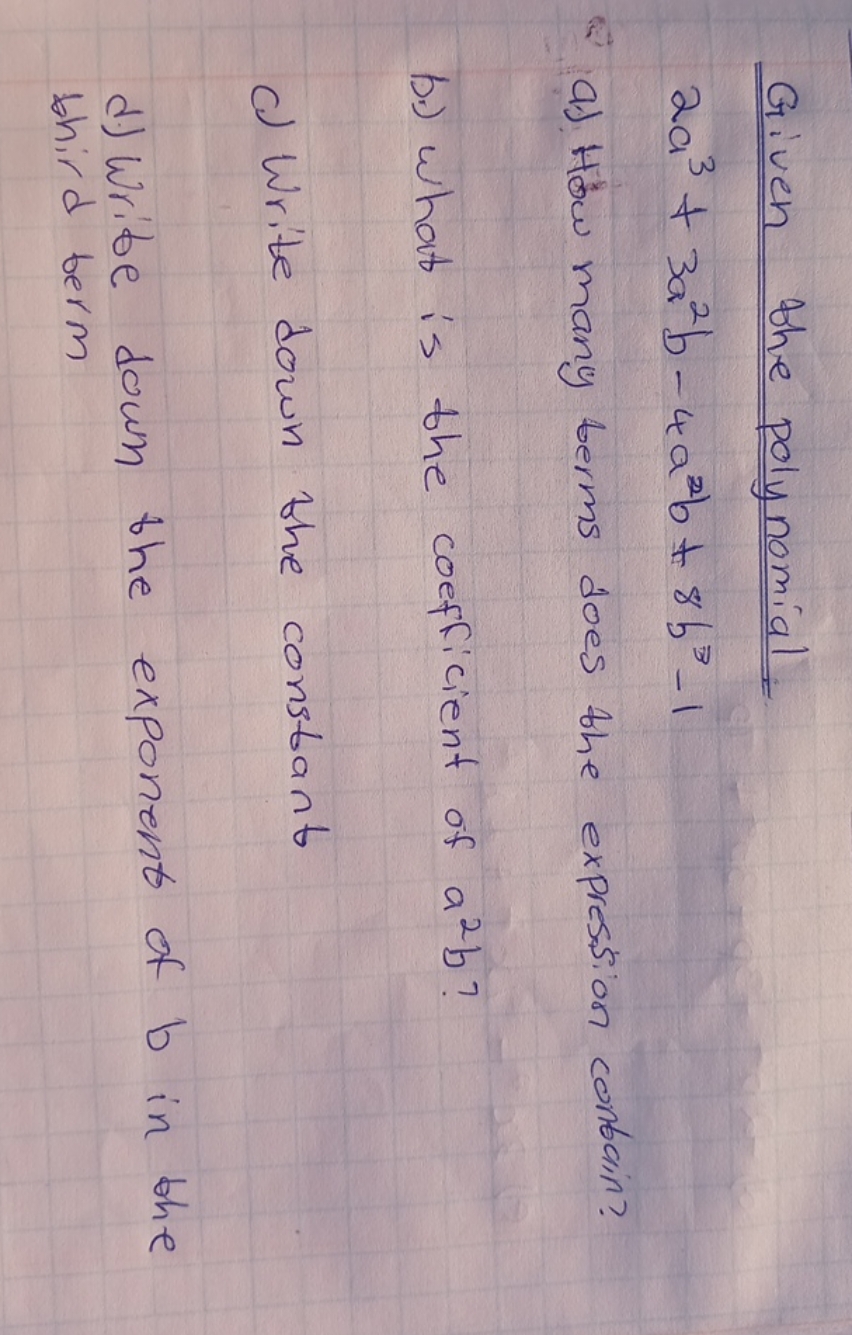 Given the polynomial
2a³ + 3a²b - 4a²b + 8b³ - 1
a) How many terms does the expression contain?
b.) what is the coefficient of a²b?
c) Write down the constant
d.) Write down the exponent of b in the
third term